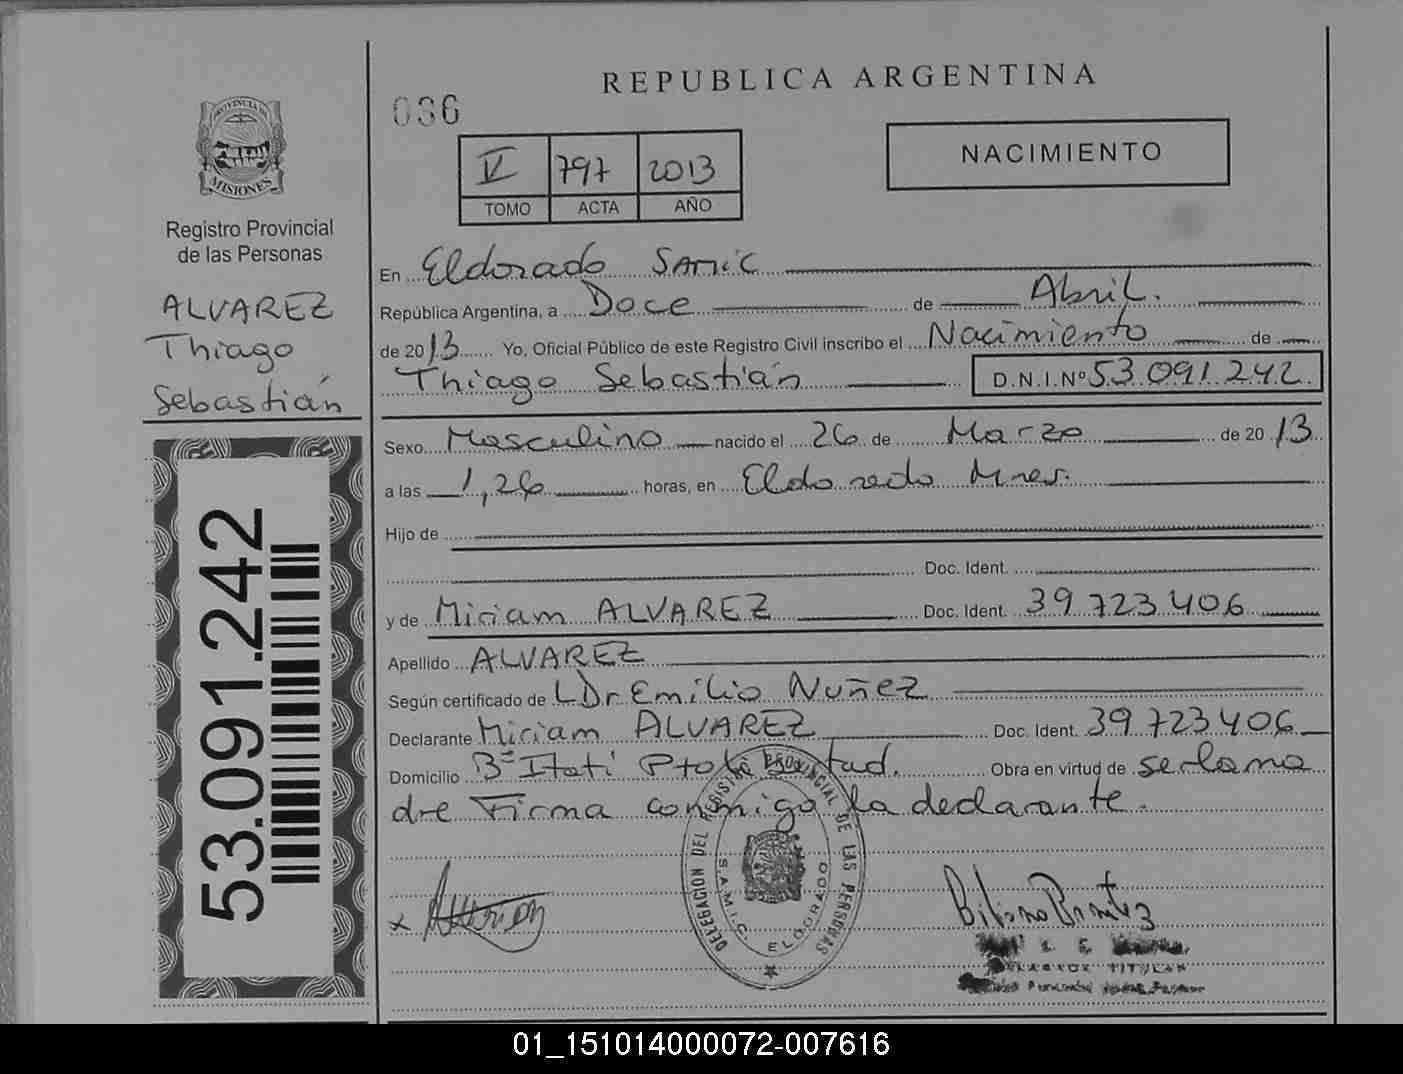 REPUBLICA ARGENTINA
036
PROVINCIA DE
MISIONES
Registro Provincial
de las Personas
V 797 2013
TOMO ACTA AÑO
NACIMIENTO
ALVAREZ
Thiago
Sebastián
53.091.242
En Eldorado SAMIC
República Argentina, a Doce de Abril.
de 2013 Yo, Oficial Público de este Registro Civil inscribo el Nacimiento de
Thiago Sebastián D.N.I.Nº 53.091.242.
Sexo Masculino nacido el 26 de Marzo de 2013
a las 1,26 horas, en Eldorado Mnes.
Hijo de
Doc. Ident.
y de Miriam ALVAREZ Doc. Ident. 39.723.406
Apellido ALVAREZ
Según certificado de Dr Emilio Nuñez
Declarante Miriam ALVAREZ Doc. Ident. 39.723.406
Domicilio Bº Itati Pto Obra en virtud de ser la ma
dre Firma conmigo la declarante.
DELEGACION DEL REGISTRO PROVINCIAL DE LAS PERSONAS
S.A.M.I.C. ELDORADO
x
TITULAR
01_151014000072-007616